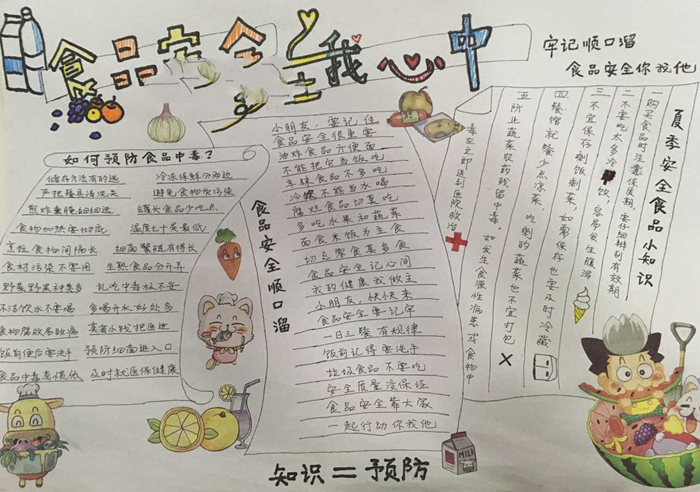 食品安全在我心中
牢记顺口溜
食品安全你我他
如何预防食品中毒？
储存方法有的选 冷冻保鲜分两边
严把餐具清洗关 避免食物被污染
煎炸熏腌细细选 罐头食品少吃点
食物加热要彻底 温度七十是最低
烹饪食物间隔长 细菌繁殖有得长
食材污染不要用 生熟食品分开弄
野菜野果种类多 乱吃中毒极不安
不洁饮水不要喝 多喝开水好处多
食物腐败易致病
饭前便后要洗手 预防细菌进入口
食品中毒莫慌张 及时就医保健康
食品安全顺口溜
小朋友，要记住
食品安全很重要
油炸食品方便面
不能把它当饭吃
烧烤食品不多吃
冷饮不能当水喝
腐烂食品切莫吃
多吃水果和蔬菜
面食米饭为主食
切忌零食莫多食
食品安全记心间
我的健康我做主
小朋友，快快来
食品安全要记牢
一日三餐有规律
饭前记得要洗手
垃圾食品不要吃
安全质量没保证
食品安全靠大家
一起行动你我他
夏季安全食品小知识
一购买食品时注意保质期，要仔细辨别有效期
二不要吃太多冷饮，容易发生腹泻
三不宜保存剩饭剩菜，如需保存也要及时冷藏
四餐馆就餐少点凉菜，吃剩的蔬菜也不宜打包
五防止蔬菜农药残留中毒，如发生食源性疾患或食物中
毒应立即送到医院救治
MILK
知识＝预防